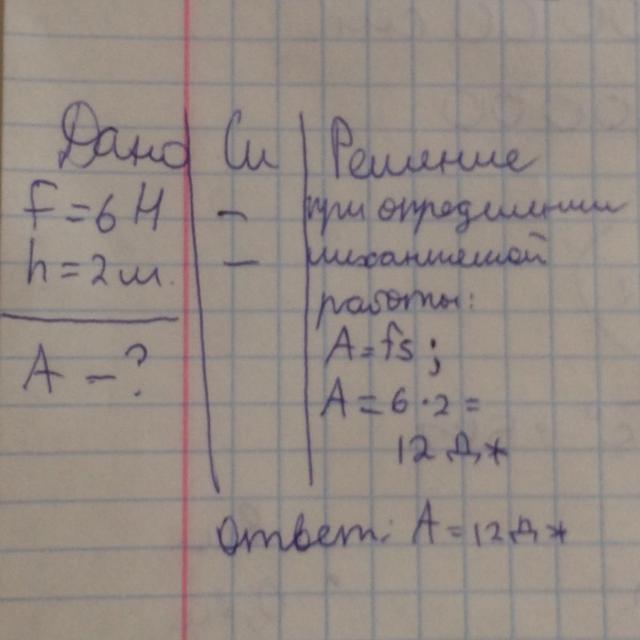 Дано Си Решение
F = 6 Н – при определении
h = 2 м. – механической
работы:
A = fs;
A – ?
A = 6 · 2 =
12 Дж
Ответ: A = 12 Дж